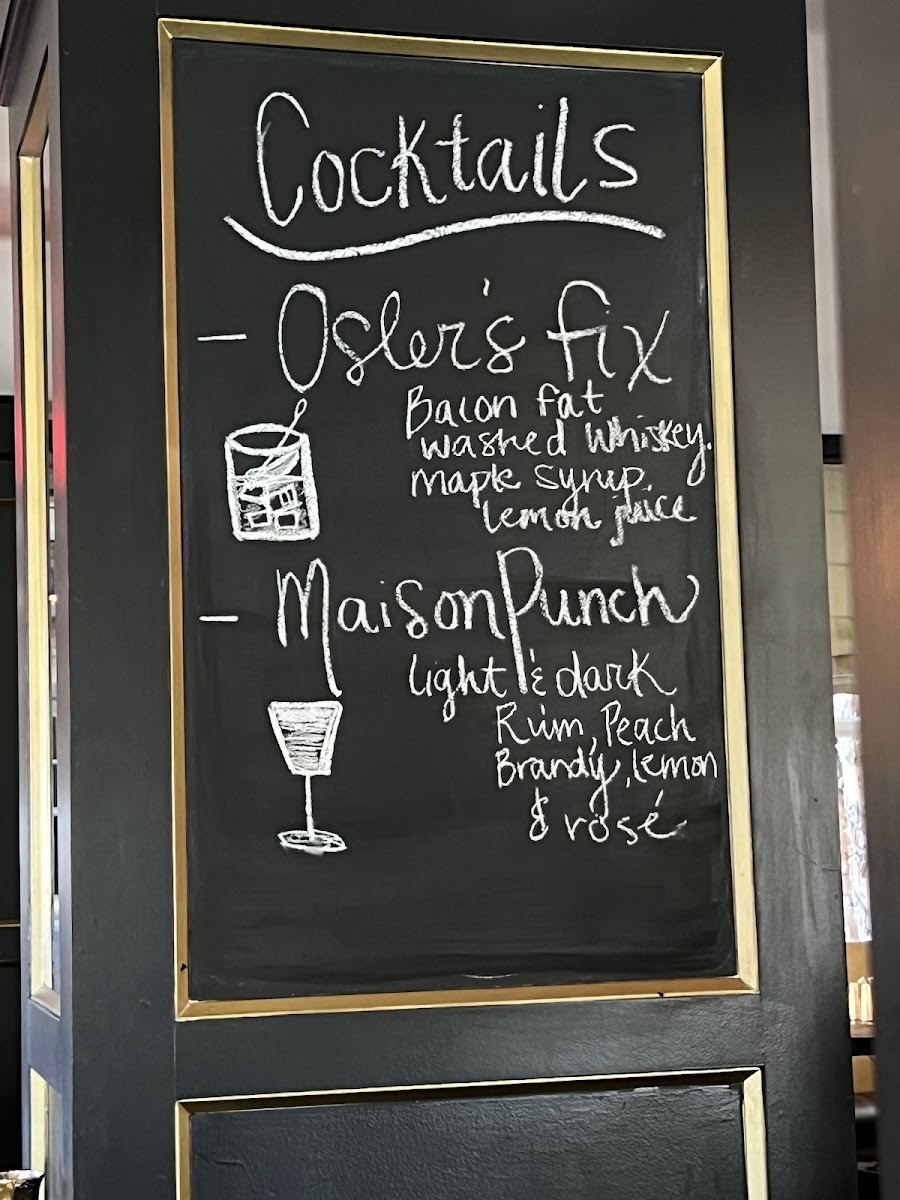 Cocktails
- Osler's fix
Bacon fat
washed whiskey.
maple syrup.
lemon juice
- Maison Punch
light & dark
Rum, Peach
Brandy, lemon
& rosé